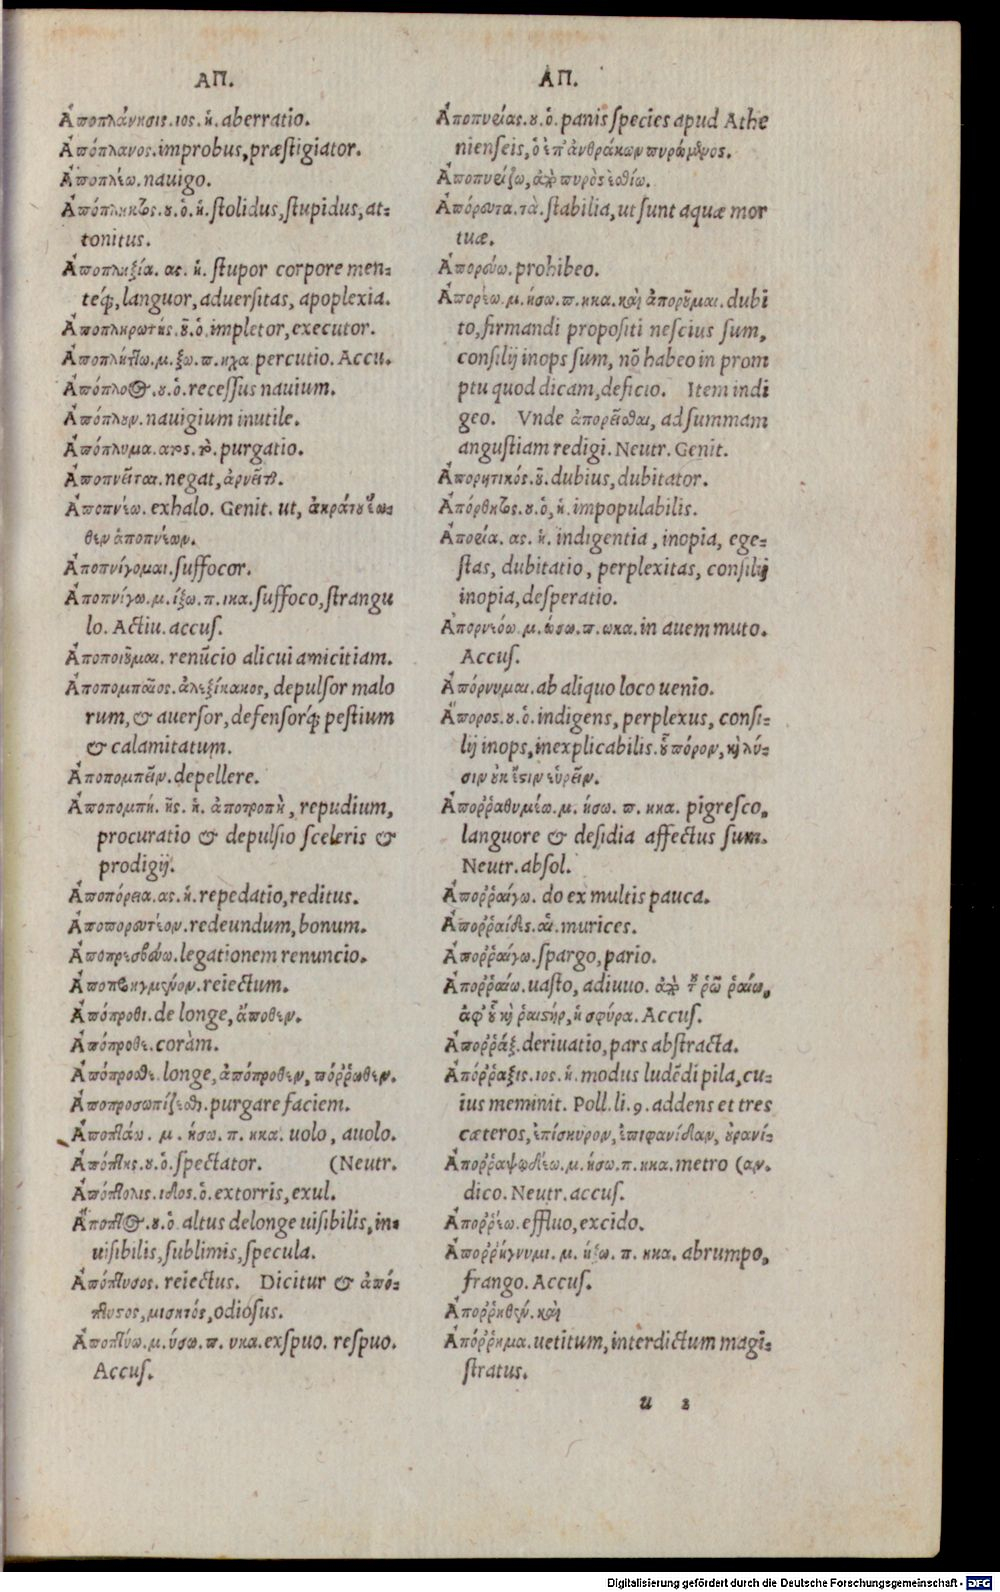 ΑΠ.
Ἀποπλάνησις.ιος.ἡ. aberratio.
Ἀπόπλανος. improbus, præstigiator.
Ἀποπλέω. nauigo.
Ἀπόπληκτος.ου.ὁ.ἡ. stolidus, stupidus, at-
tonitus.
Ἀποπληξία. ας. ἡ. stupor corpore men-
teq́;, languor, aduersitas, apoplexia.
Ἀποπληρωτής.οῦ.ὁ. impletor, executor.
Ἀποπλήττω.μ.ξω.π.ηχα percutio. Accu.
Ἀπόπλοος.ου.ὁ. recessus nauium.
Ἀπόπλουν. nauigium inutile.
Ἀπόπλυμα.ατος.τὸ. purgatio.
Ἀποπνεῖται. negat, ἀρνεῖται.
Ἀποπνέω. exhalo. Genit. ut, ἀκράτου ἕω-
θεν ἀποπνέων.
Ἀποπνίγομαι. suffocor.
Ἀποπνίγω.μ.ίξω.π.ιχα. suffoco, strangu
lo. Actiu. accus.
Ἀποποιοῦμαι. renūcio alicui amicitiam.
Ἀποπομπαῖος. ἀλεξίκακος, depulsor malo
rum, & auersor, defensorq́; pestium
& calamitatum.
Ἀποπομπεῖν. depellere.
Ἀποπομπή. ῆς. ἡ. ἀποτροπὴ, repudium,
procuratio & depulsio sceleris &
prodigij.
Ἀποπόρεια.ας.ἡ. repedatio, reditus.
Ἀποπορευτέον. redeundum, bonum.
Ἀποπρεσβεύω. legationem renuncio.
Ἀποπροηγμένον. reiectum.
Ἀπόπροθι. de longe, ἄποθεν.
Ἀπόπροθε. coràm.
Ἀπόπροσθε. longe, ἀπόπροθεν, πόῤῥωθεν.
Ἀποπροσωπίζεσθαι. purgare faciem.
Ἀποπτάω. μ. ήσω. π. ηκα. uolo, auolo.
Ἀπόπτης.ου.ὁ. spectator. (Neutr.
Ἀπόπτολις.ιδος.ὁ. extorris, exul.
Ἄποπτος.ου.ὁ. altus delonge uisibilis, in-
uisibilis, sublimis, specula.
Ἀπόπτυσος. reiectus. Dicitur & ἀπό-
πτυστος, μισητός, odiosus.
Ἀποπτύω.μ.ύσω.π.υκα. exspuo. respuo.
Accus.
ΑΠ.
Ἀποπυρίας.ου.ὁ. panis species apud Athe
nienseis, ὁ ἐπ' ἀνθράκων πυρώμενος.
Ἀποπυρίζω, ἀπὸ πυρὸς ἐσθίω.
Ἀπόρευτα.τὰ. stabilia, ut sunt aquæ mor
tuæ.
Ἀπορεύω. prohibeo.
Ἀπορέω.μ.ήσω.π.ηκα. καὶ ἀποροῦμαι. dubi
to, firmandi propositi nescius sum,
consilij inops sum, nō habeo in prom
ptu quod dicam, deficio. Item indi
geo. Vnde ἀπορεῖσθαι, ad summam
angustiam redigi. Neutr. Genit.
Ἀπορητικός.οῦ. dubius, dubitator.
Ἀπόρθητος.ου.ὁ,ἡ. impopulabilis.
Ἀπορία. ας. ἡ. indigentia, inopia, ege-
stas, dubitatio, perplexitas, consilij
inopia, desperatio.
Ἀπορνεόω.μ.ώσω.π.ωκα. in auem muto.
Accus.
Ἀπόρνυμαι. ab aliquo loco uenio.
Ἄπορος.ου.ὁ. indigens, perplexus, consi-
lij inops, inexplicabilis. οὗ πόρον, καὶ λύ-
σιν οὐκ ἔστιν εὑρεῖν.
Ἀποῤῥαθυμέω.μ. ήσω. π. ηκα. pigresco,
languore & desidia affectus sum.
Neutr. absol.
Ἀποῤῥαίγω. do ex multis pauca.
Ἀποῤῥαίδες. αἱ. murices.
Ἀποῤῥαίγω. spargo, pario.
Ἀποῤῥαίω. uasto, adiuuo. ἀπὸ τοῦ ῥῶ ῥαίω,
ἀφ' οὗ καὶ ῥαιστήρ, ἡ σφύρα. Accus.
Ἀποῤῥάξ. deriuatio, pars abstracta.
Ἀπόῤῥαξις.ιος.ἡ. modus ludēdi pila, cu-
ius meminit. Poll. li. 9. addens et tres
cæteros, ἐπίσκυρον, ἐπιφανίδαν, οὐρανί-
Ἀποῤῥαψῳδέω.μ.ήσω.π.ηκα. metro (αν.
dico. Neutr. accus.
Ἀποῤῥέω. effluo, excido.
Ἀποῤῥήγνυμι. μ. ήξω. π. ηκα. abrumpo,
frango. Accus.
Ἀποῤῥηθέν. καὶ
Ἀπόῤῥημα. uetitum, interdictum magi-
stratus.
u 2
Digitalisierung gefördert durch die Deutsche Forschungsgemeinschaft - DFG